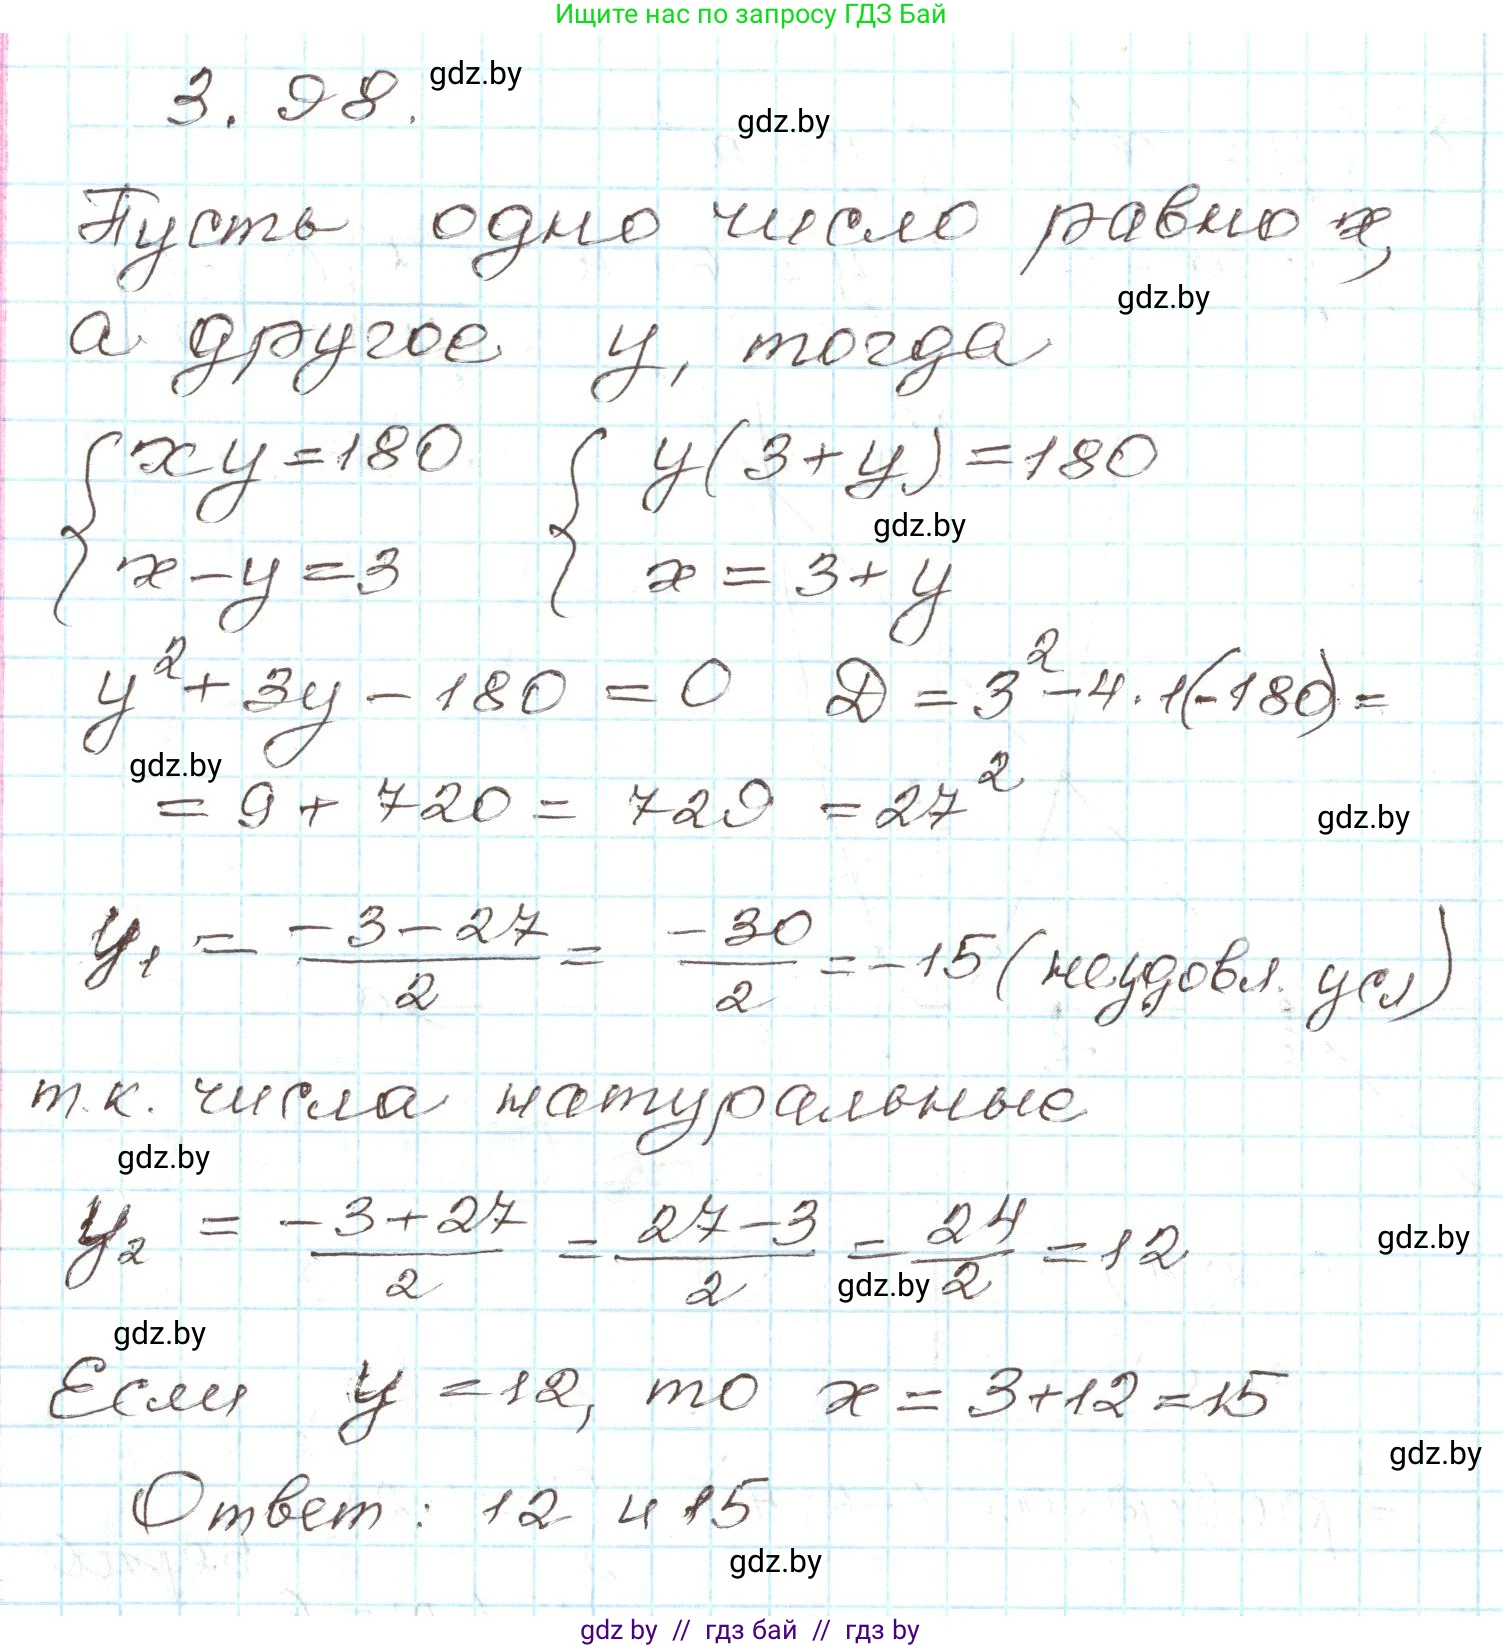 Ищите нас по запросу ГДЗ Бай
3.98. gdz.by
gdz.by
Пусть одно число равно x,
gdz.by
а другое y, тогда
{ xy=180 { y(3+y)=180
gdz.by
x-y=3 x=3+y
y²+3y-180=0 D=3²-4·1(-180)=
gdz.by
=9+720=729=27²
gdz.by
y₁ = (-3-27)/2 = -30/2 = -15 (неудовл. усл)
т.к. числа натуральные
gdz.by
y₂ = (-3+27)/2 = (27-3)/2 = 24/2 = 12
gdz.by
gdz.by
gdz.by
Если y=12, то x=3+12=15
gdz.by
Ответ: 12 и 15
gdz.by
gdz by // гдз бай // гдз by